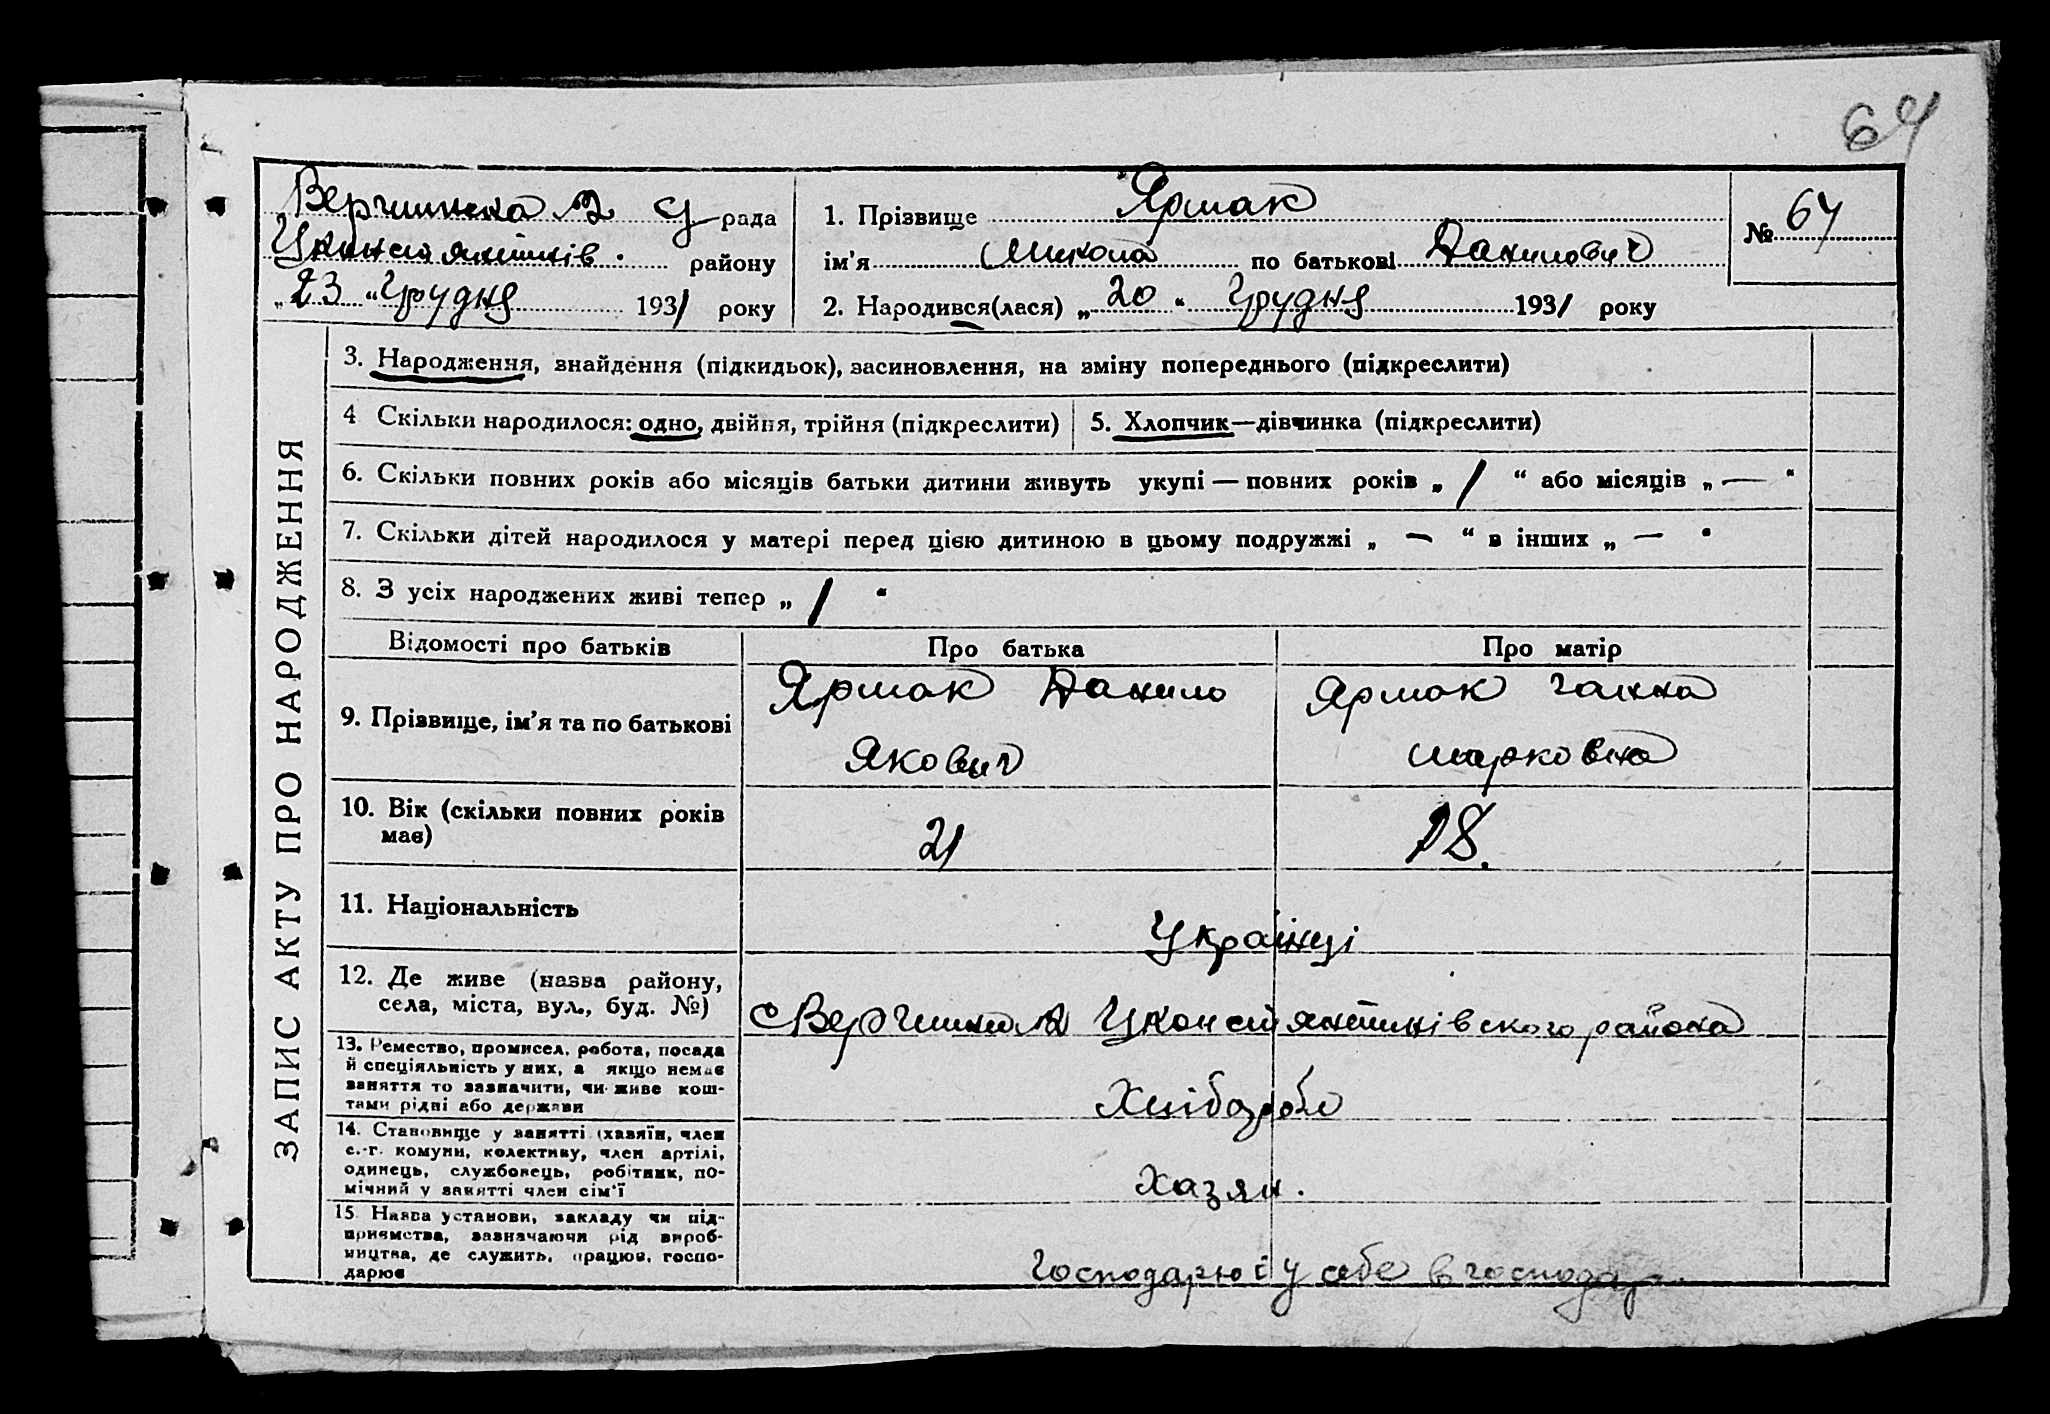 64
Вергшинска сь рада
района
„23 “ Грудня 1931 року
1. Прізвище Ярмак
ім’я Микола по батькові Данилович
№ 64
2. Народився(лася) „20 “ Грудня 1931 року
ЗАПИС АКТУ ПРО НАРОДЖЕННЯ
3. Народження, знайдення (підкидьок), засиновлення, на зміну попереднього (підкреслити)
4 Скільки народилося: одно, двійня, трійня (підкреслити)
5. Хлопчик—дівчинка (підкреслити)
6. Скільки повних років або місяців батьки дитини живуть укупі — повних років „ 1 “ або місяців „ — “
7. Скільки дітей народилося у матері перед цією дитиною в цьому подружжі „ — “ в інших „ — “
8. З усіх народжених живі тепер „ 1 “
Відомості про батьків Про батька Про матір
9. Прізвище, ім’я та по батькові
Ярмак Данило
Якович
Ярмак Ганна
Марковна
10. Вік (скільки повних років
має)
21
18.
11. Національність
Українці
12. Де живе (назва району,
села, міста, вул., буд. №)
району
13. Ремество, промисел, робота, посада
й спеціяльність у них, а якщо немає
заняття то зазначити, чи живе кош-
тами рідні або держави
Хлібороби
14. Становище у занятті (хазяїн, член
с.-г. комуни, колективу, член артілі,
одинець, службовець, робітник, по-
мічний у занятті член сім’ї
Хазяи.
15 Назва установи, закладу чи під-
приємства, зазначаючи рід вироб-
ництва, де служить, працює, госпо-
дарює
Господарює у себе в господар